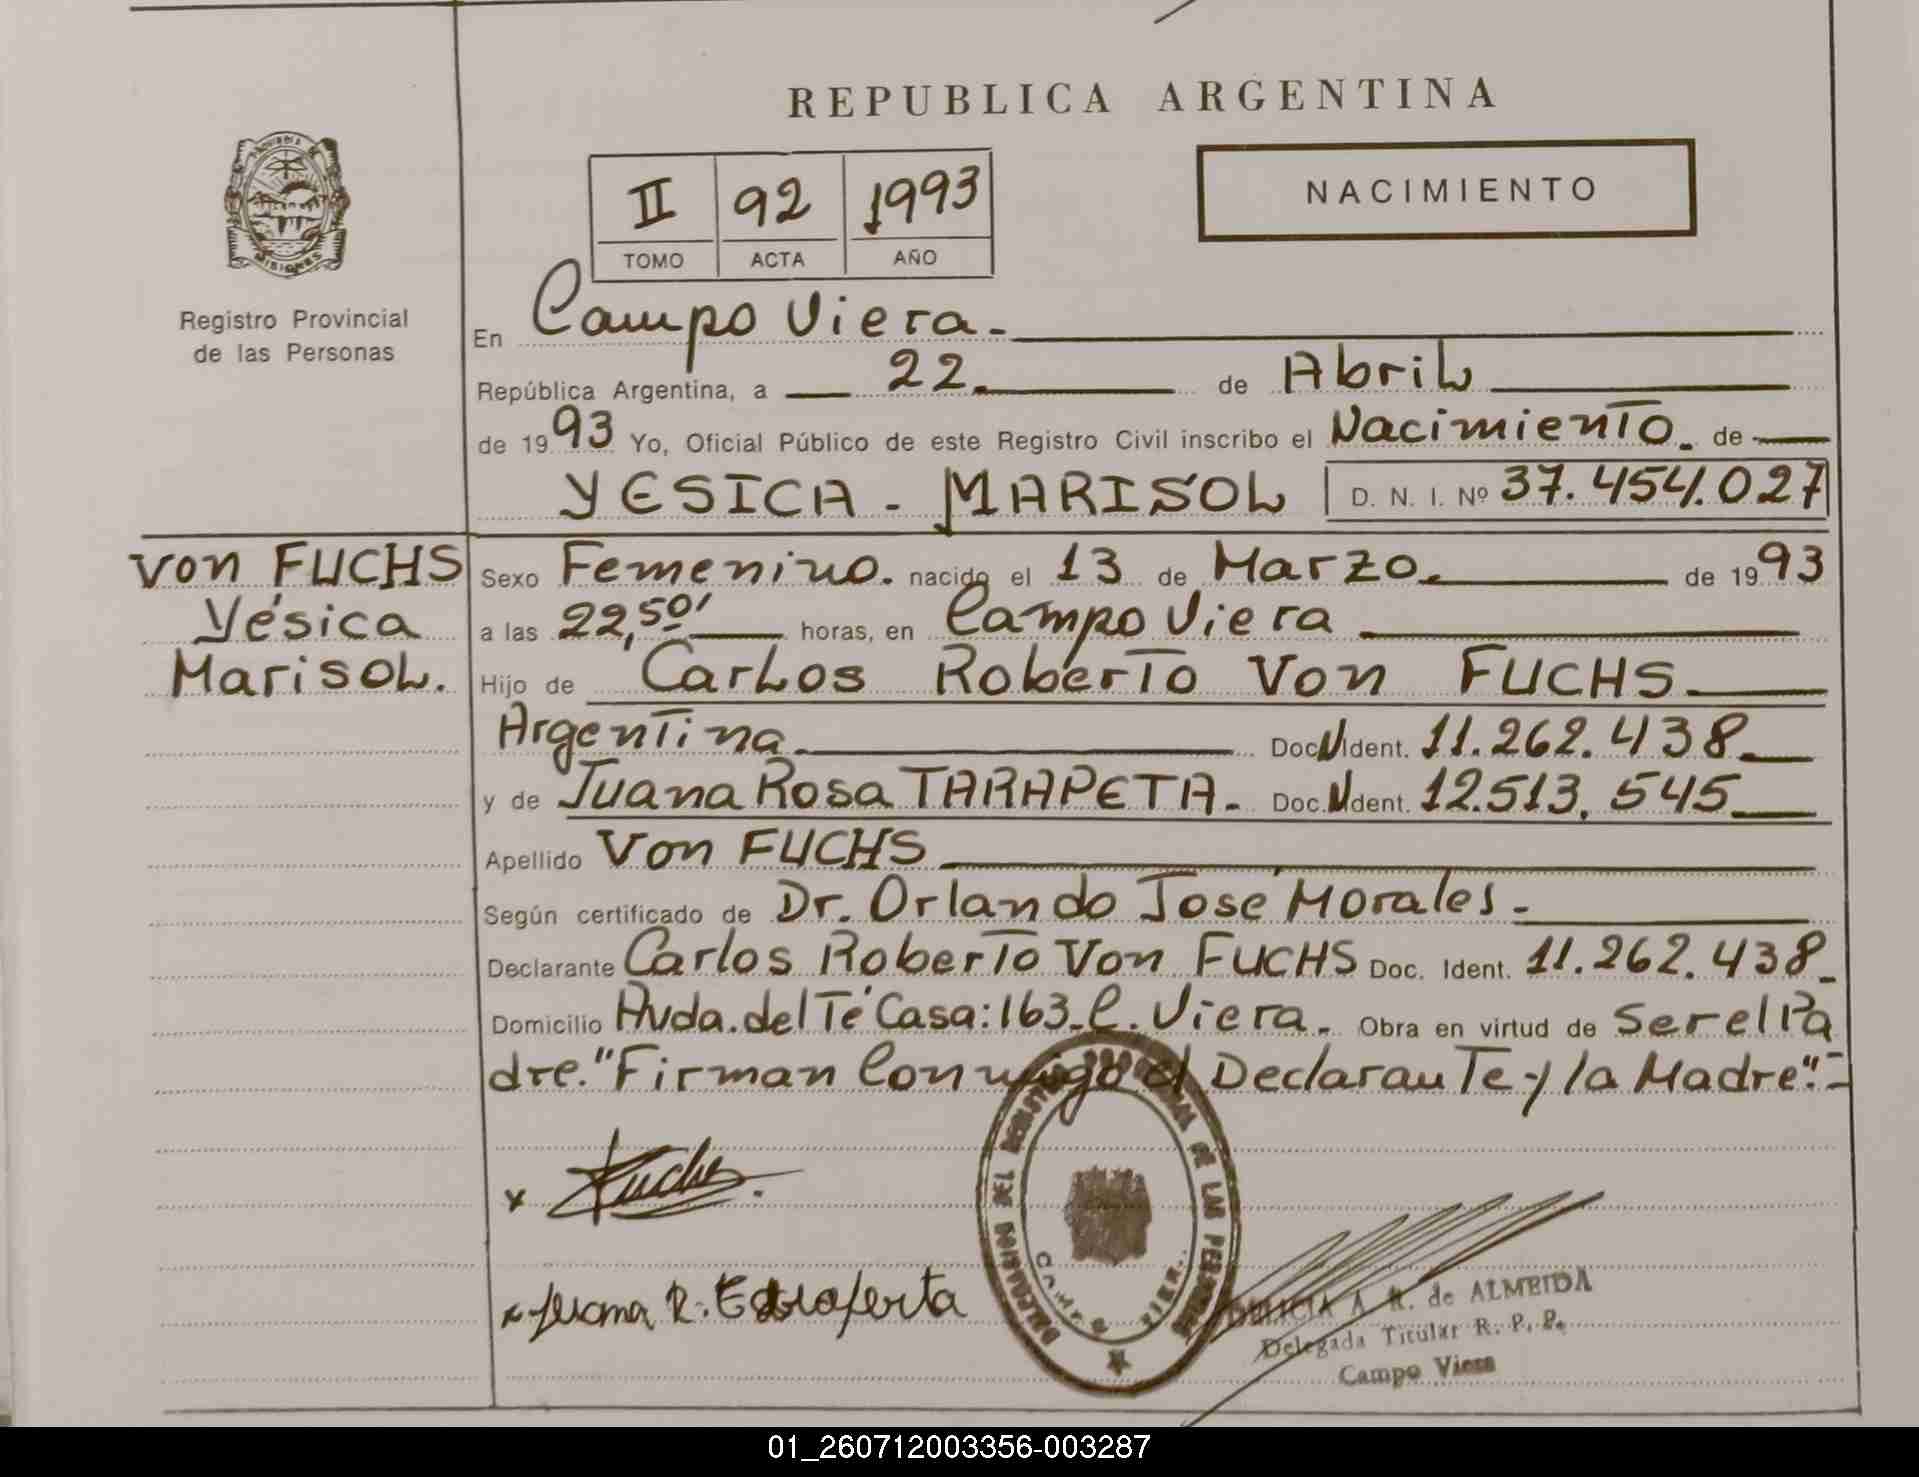 REPUBLICA ARGENTINA
NACIMIENTO
II 92 1993
TOMO ACTA AÑO
MISIONES
Registro Provincial
de las Personas
En Campo Viera.
República Argentina, a 22. de Abril
de 1993 Yo, Oficial Público de este Registro Civil inscribo el Nacimiento. de
YESICA - MARISOL D. N. I. Nº 37.454.027
Von FUCHS
Yésica
Marisol.
Sexo Femenino. nacido el 13 de Marzo. de 1993
a las 22,50' horas, en Campo Viera
Hijo de Carlos Roberto Von FUCHS.
Argentina. Doc. Ident. 11.262.438.
y de Juana Rosa TARAPETA. Doc. Ident. 12.513.545
Apellido Von FUCHS
Según certificado de Dr. Orlando José Morales.
Declarante Carlos Roberto Von FUCHS Doc. Ident. 11.262.438.
Domicilio Avda. del Té Casa: 163. C. Viera. Obra en virtud de Ser el Pa
dre. "Firman Conmigo el Declarante y la Madre".-
x Fuchs.
x Juana R.
DELEGACION DEL REGISTRO PROVINCIAL DE LAS PERSONAS
CAMPO VIERA
A. R. de ALMEIDA
Delegada Titular R. P. P.
Campo Viera
01_260712003356-003287